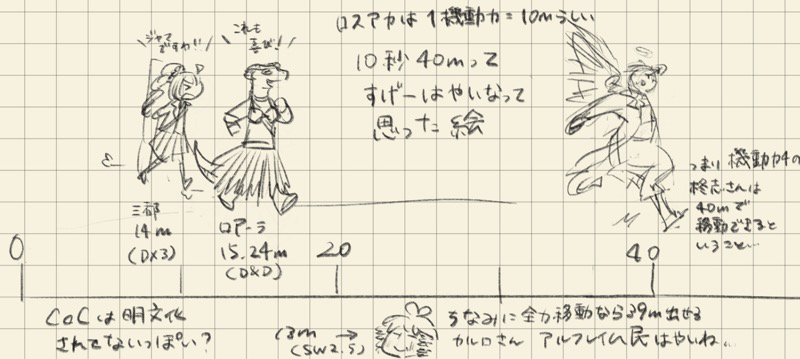 ロスアカは1機動力=10mらしい
ジャマ
ですわ!!
これも
喜び!
10秒40mって
すげーはやいなって
思った絵
つまり機動力4の
柊志さんは
40mで
移動できると
いうこと…
三都
14m
(DX3)
ロアーラ
15.24m
(D&D)
0
20
40
CoCは明文化
されてないっぽい?
13m →
(SW2.5)
ちなみに全力移動なら39m出せる
カルロさん アルフレイム民はやいね…